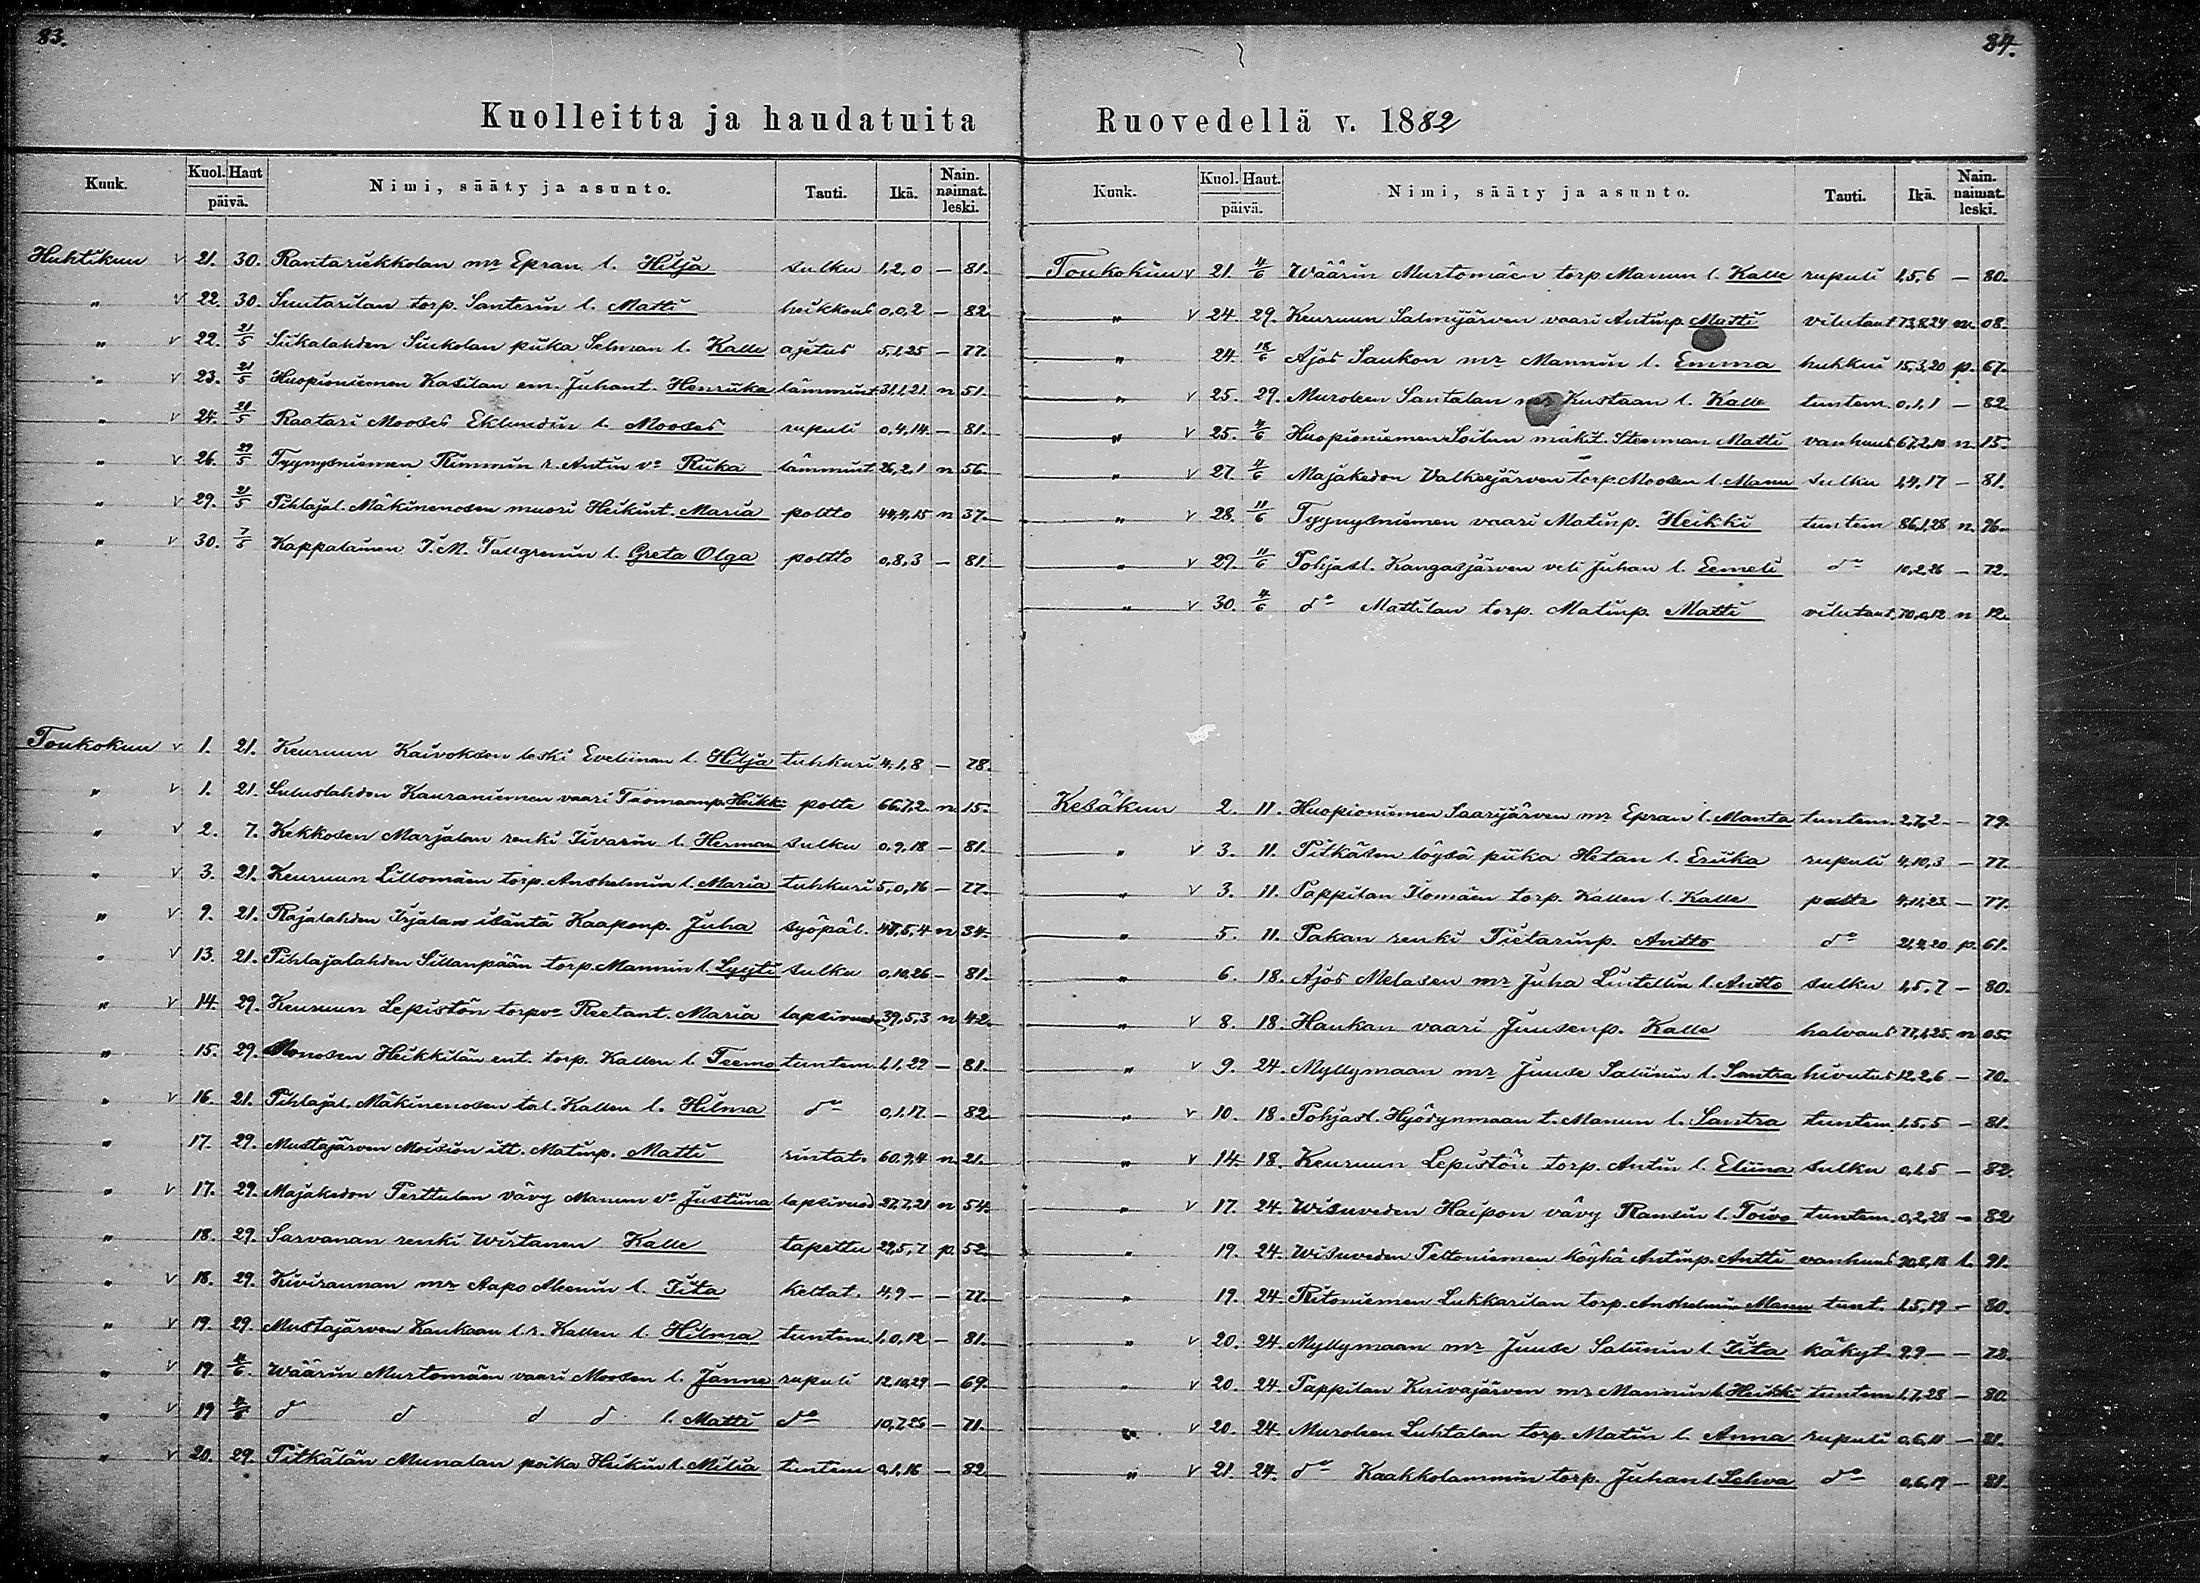 83.
Kuolleitta ja haudatuita
Kuuk. Kuol. Haut päivä. Nimi, sääty ja asunto. Tauti. Ikä. Nain. naimat. leski.
Huhtikuu v 21. 30. Rantaruekkolan mr Epran l. Hilja sulku 1,2,0 — 81.
" v 22. 30. Suutarilan torp. Santerin l. Matti heikkous 0,0,2 — 82
" v 22. 21/5 Siikalahden Suckolan piika Selman l. Kalle ajetus 5,1,25 — 77.
" v 23. 21/5 Huopioniemen Kasilan em. Juhant. Henriika lämmint. 31,1,21 n 51.
" v 24. 21/5 Raatari Mooses Eklundin l. Mooses rupuli 0,4,14 — 81.
" v 26. 29/5 Tyynysniemen Rimmin r. Antin vo Riika lämmint. 26,2,1 n 56.
" v 29. 21/5 Pihlajal. Mäkinenosen muori Heikint. Maria poltto 44,4,15 n 37.
" v 30. 7/5 Kappalainen J.M. Tallgrenin l. Greta Olga poltto 0,8,3 — 81.
Toukokuu v 1. 21. Keuruun Kaivoksen leski Eveliinan l. Hilja tuhkuri 4,1,8 — 78.
" v 1. 21. Suluslahden Kauraniemen vaari Tuomaanp. Heikki polte 66,7,2 n 15.
" v 2. 7. Kekkosen Marjalan renki Iivarin l. Herman sulku 0,9,18 — 81.
" v 3. 21. Keuruun Lillomäen torp. Anshelmin l. Maria tuhkuri 5,0,16 — 77.
" v 9. 21. Rajalahden Irjalan isäntä Kaaponp. Juha syöpäl. 47,5,4 n 34.
" v 13. 21. Pihlajalahden Sillanpään torp. Mannin l. Lyyti sulku 0,10,26 — 81.
" v 14. 29. Keuruun Lepistön torpvo Reetant. Maria lapsivuod. 39,5,3 n 42.
" 15. 29. Monosen Heikkilän ent. torp. Kallen l. Teemo tuntem. 1,1,22 — 81.
" v 16. 21. Pihlajal. Mäkinenosen tal. Kallen l. Hilma do 0,1,17 — 82
" 17. 29. Mustajärven Moision itt. Matinp. Matti rintat. 60,9,4 n 21.
" v 17. 29. Majakedon Perttulan vävy Manun vo Justiina lapsivuod 27,7,21 n 54.
" 18. 29. Sarvanan renki Wirtanen Kalle tapettu 29,5,7 p. 52.
" v 18. 29. Kivirannan mr Aapo Aleniin l. Iita keltat. 4,9 — — 77.
" v 19. 29. Mustajärven Kaukaan l.r. Kallen l. Hilma tuntem. 1,0,12 — 81.
" v 19. 4/6. Wäärin Murtomäen vaari Moosen l. Janne rupuli 12,10,29 — 69.
" v 19 4/6 d d d d l. Matti do 10,7,25 — 71.
" v 20. 29. Pitkälän Munalan poika Heikin l. Miliä tuntem 0,1,16 — 82.
84.
Ruovedellä v. 1882
Kuuk. Kuol. Haut. päivä. Nimi, sääty ja asunto. Tauti. Ikä. Nain. naimat. leski.
Toukokuu v 21. 4/6 Wäärin Murtomäen torp Manun l. Kalle rupuli 1,5,6 — 80.
" v 24. 29. Keuruun Salmijärven vaari Antinp. Matti vilutaut. 73,8,24 n. 08.
" 24. 18/6 Ajos Saukon mr Mannin l. Emma hukkui 15,3,20 p. 67.
" v 25. 29. Muroleen Santalan mr Kustaan l. Kalle tuntem. 0,1,1 — 82.
" v 25. 4/6 Huopioniemen Soilun mäkit. Stenman Matti vanhuus 67,2,10 n 15.
" v 27. 4/6 Majakedon Valkejärven torp. Moosen l. Manu sulku 1,4,17 — 81.
" v 28. 11/6 Tyynysniemen vaari Matinp. Heikki tuntem 86,1,28 n. 96.
" v 29. 11/6 Pohjasl. Kangasjärven veli Juhan l. Eemeli do 10,2,26 — 72.
" v 30. 4/6 do Mattilan torp. Matinp. Matti vilutaut. 70,0,12 n 12.
Kesäkuu 2. 11. Huopioniemen Saarijärven mr Epran l. Manta tuntem. 2,7,2 — 79.
" v 3. 11. Pitkäsen löysä piika Hetan l. Eriika rupuli 4,10,3 — 77.
" v 3. 11. Pappilan Ilomäen torp. Kallen l. Kalle poltte 4,11,23 — 77.
" 5. 11. Pakan renki Pietarinp. Antto do 21,2,20 p. 61.
" 6. 18. Ajos Melasen mr Juha Lintellin l. Antto sulku 1,5,7 — 80.
" v 8. 18. Haukan vaari Juusenp. Kalle halvaus 77,1,25 n 05.
" v 9. 24. Myllymaan mr Juuse Saliniin l. Santra hivutus 12,2,6 — 70.
" v 10. 18. Pohjasl. Hyödynmaan t. Manun l. Santra tuntem. 1,5,5 — 81.
" v 14. 18. Keuruun Lepistön torp. Antin l. Eliina sulku 0,1,5 — 82.
" v 17. 24. Wisuveden Haipon vävy Ransin l. Toivo tuntem. 0,2,28 — 82
" 19. 24. Wisuveden Peltoniemen köyhä Antinp. Antti vanhuus 90,8,18 l. 91.
" 19. 24. Ritoniemen Lukkarilan torp. Anshelmin Manu tunt. 1,5,19 — 80.
" v 20. 24. Myllymaan mr Juuse Saliniin l. Iita käkyt. 9,9 — — 72.
" v 20. 24. Pappilan Kuivajärven mr Mannin l. Heikki tuntem 1,7,28 — 80.
" v 20. 24. Muroleen Luhtalan torp. Matin l. Anna rupuli 0,6,11 — 81.
" v 21. 24. do Kaakkolammin torp. Juhan l. Selma do 0,6,19 — 81.